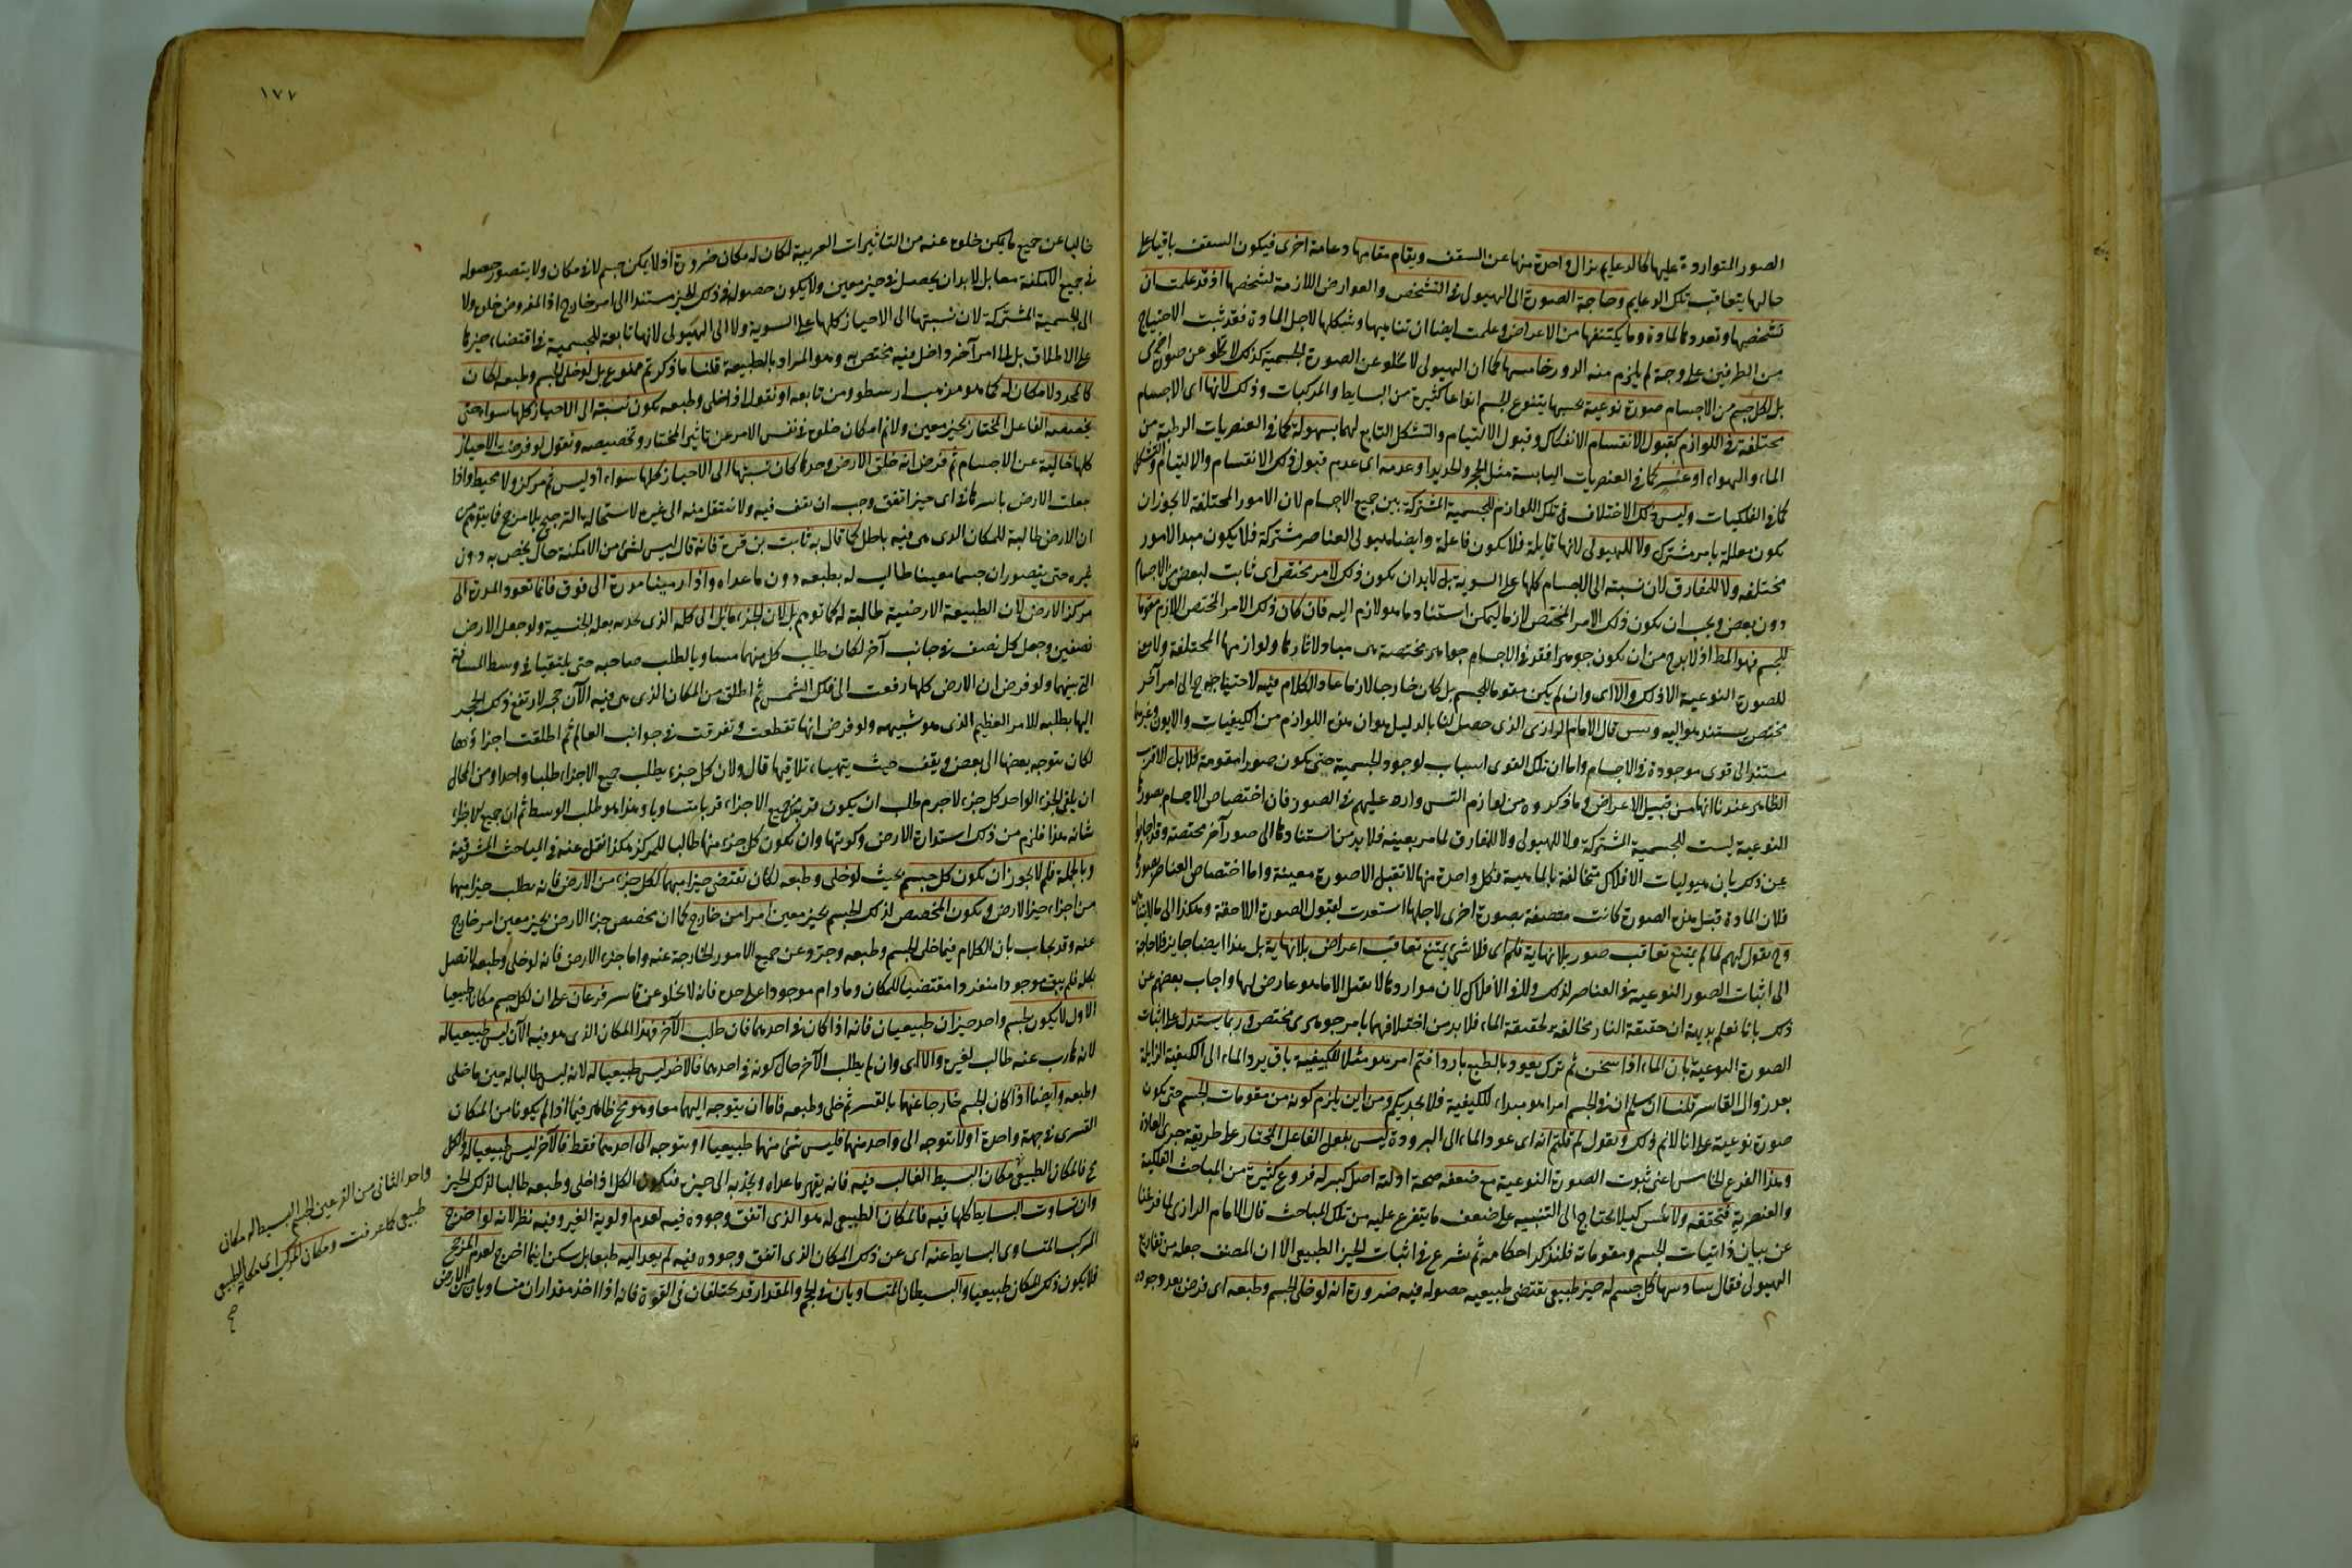 الصور المتواردة عليها كالدعايم يزال واحدة منها عن السقف ويقام مقامها دعامة اخرى فيكون السقف باقيا على
حالها يتعاقب تلك الدعايم وحاجة الصورة الى الهيولى فى التشخص والعوارض اللازمة لتشخصها اذ قد علمت ان
تشخصها وتعددها لمادة وما يكتنفها من الاعراض وعلمت ايضا ان تناهيها وشكلها لاجل المادة فقد ثبت الاحتياج
من الطرفين على وجه لم يلزم منه الدور خامسها كما ان الهيولى لا تخلو عن الصورة الجسمية كذلك لا تخلو عن صورة اخرى
بل لكل جسم من الاجسام صورة نوعية بحسبها يتنوع الجسم انواعا كثيرة من البسايط والمركبات وذلك لانها اى الاجسام
مختلفة فى اللوازم كقبول الانقسام الانفكاك وقبول الالتيام والتشكل التابع لهما بسهولة كما فى العنصريات الرطبة من
الماء والهواء او عسر كما فى العنصريات اليابسة مثل الحجر والحديد او عدمه اى عدم قبول ذلك الانقسام والالتيام والتشكل
كما فى الفلكيات وليس ذلك الاختلاف فى تلك اللوازم للجسمية المشتركة بين جميع الاجسام لان الامور المختلفة لا يجوز ان
يكون معللة بامر مشترك ولا للهيولى لانها قابلة فلا يكون فاعلة وايضا هيولى العناصر مشتركة فلا يكون مبدا لامور
مختلفة ولا للمفارق لان نسبته الى الاجسام كلها على السوية بل لا بد ان يكون ذلك لامر مختص اى ثابت لبعض من الاجسام
دون بعض ويجب ان يكون ذلك الامر المختص لازما ليمكن استناد ما هو لازم اليه فان كان ذلك الامر المختص اللازم مقوما
للجسم فهو المط اذ لا بد ح من ان يكون جوهرا فقد فى الاجسام جواهر مختصة هى مباد لاثارها ولوازمها المختلفة ولا معنى
للصورة النوعية الا ذلك والا اى وان لم يكن مقوما للجسم بل كان خارجا لازما عاد الكلام فيه لاحتياجه ح الى امر آخر
مختص يستند هو اليه وليس قال الامام الرازى الذى حصل لنا بالدليل هو ان هذه اللوازم من الكيفيات والايون وغيرها
مستندة الى قوى موجودة فى الاجسام واما ان تلك القوى اسباب لوجود الجسمية حتى يكون صورا مقومة فلا بل الاقرب
الظاهر عندنا انها من قبيل الاعراض وما ذكروه من لوازم التس وارد عليهم فى الصور فان اختصاص الاجسام بصورها
النوعية ليست للجسمية المشتركة ولا للهيولى ولا للمفارق لما مر بعينه فلا بد من استنادها الى صور آخر مختصة وقد اجابوا
عن ذلك بان هيوليات الافلاك متخالفة بالماهية فكل واحدة منها لا تقبل الا صورة معينة واما اختصاص العناصر بصورها
فلان المادة قبل هذه الصورة كانت متصفة بصورة اخرى لاجلها استعدت لقبول الصورة اللاحقة وهكذا الى ما لا يتناهى
وح نقول لهم لما لم يمتنع تعاقب صور بلا نهاية فلم اى فلاى شئ يمتنع تعاقب اعراض بلا نهاية بل هذا ايضا جايز فلا حاجة
الى اثبات الصور النوعية فى العناصر لذلك ولا فى الافلاك لان موادها لا تقبل الا ما هو عارض لها واجاب بعضهم عن
ذلك بانا نعلم بديهة ان حقيقة النار مخالفة لحقيقة الماء فلا بد من اختلافهما بامر جوهرى مختص وربما يستدل على اثبات
الصورة النوعية بان الماء اذا سخن ثم ترك يعود بالطبع باردا فثم امر هو مثلا للكيفية باق يرد الماء الى الكيفية الزايلة
بعد زوال القاسر قلنا ان سلم ان فى الجسم امرا هو مبداء للكيفية فلا يجديكم ومن اين يلزم كونه من مقومات الجسم حتى يكون
صورة نوعية على انا لا نم ذلك ونقول لم قلتم انه اى عود الماء الى البرودة ليس بفعل الفاعل المختار على طريقة جرى العادة
وهذا الفرع الخامس اعنى ثبوت الصورة النوعية مع ضعفه صحة ادلته اصل كبير له فروع كثيرة من المباحث الفلكية
والعنصرية فتحققه ولا تنس كيلا تحتاج الى التنبيه على ضعف ما يتفرع عليه من تلك المباحث قال الامام الرازى لما فرغنا
عن بيان ذاتيات الجسم ومقوماته فلنذكر احكامه ثم شرع فى اثبات الحيز الطبيعى الا ان المصنف جعله من تفاريع
الهيولى فقال سادسها كل جسم له حيز طبيعى تقتضى طبيعته حصوله فيه ضرورة انه لو خلى الجسم وطبعه اى فرض بعد وجوده
١٧٧
خاليا عن جميع ما يمكن خلوه عنه من التاثيرات الغريبة لكان له مكان ضرورة اذ لا يمكن جسم لا فى مكان ولا يتصور حصوله
فى جميع الامكنة معا بل لا بد ان يحصل فى حيز معين ولا يكون حصوله فى ذلك الحيز مستندا الى امر خارج اذ المفروض خلوه ولا
الى الجسمية المشتركة لان نسبتها الى الاحياز كلها على السوية ولا الى الهيولى لانها تابعة للجسمية فى اقتضاء حيز ما
على الاطلاق بل لها امر آخر داخل فيه مختص به وهو المراد بالطبيعة قلنا ما ذكرتم ممنوع بل لو خلى الجسم وطبعه لكان
كالمحدد لا مكان له كما هو مذهب ارسطو ومن تابعه او نقول اذا خلى وطبعه يكون نسبته الى الاحياز كلها سواء حتى
يخصصه الفاعل المختار بحيز معين ولا نم امكان خلوه فى نفس الامر عن تاثير المختار وتخصيصه ونقول لو فرضت الاحياز
كلها خالية عن الاجسام ثم فرض انه خلق الارض وحدها كان نسبتها الى الاحياز كلها سواء اذ ليس ثم مركز ولا محيط واذا
جعلت الارض باسرها فى اى حيز اتفق وجب ان يقف فيه ولا ينتقل منه الى غيره لاستحالة الترجيح بلا مرجح فما يتوهم من
ان الارض طالبة للمكان الذى هى فيه باطل كما قال به ثابت بن قرة فانه قال ليس لشئ من الامكنة حال يخص به دون
غيره حتى يتصور ان جسما معينا طالب له بطبعه دون ما عداه واذا رمينا مدرة الى فوق فانما تعود المدرة الى
مركز الارض لان الطبيعة الارضية طالبة له كما توهم بل لان الجزء مايل الى كله الذى يجذبه بعلة الجنسية ولو جعل الارض
نصفين وجعل كل نصف فى جانب آخر لكان طلب كل منهما مساويا لطلب صاحبه حتى يلتقيا فى وسط المسافة
التى بينهما ولو فرض ان الارض كلها رفعت الى فلك الشمس ثم اطلق من المكان الذى هى فيه الآن حجر لارتفع ذلك الحجر
اليها بطلبه للامر العظيم الذى هو شبيهه ولو فرض انها تقطعت وتفرقت فى جوانب العالم ثم اطلقت اجزاؤها
لكان يتوجه بعضها الى بعض ويقف حيث يتهيأ تلاقيها قال ولان كل جزء يطلب جميع الاجزاء طلبا واحدا ومن المحال
ان يلقى الجزء الواحد كل جزء لا جرم طلب ان يكون قربه من جميع الاجزاء قربا متساويا وهذا هو طلب الوسط ثم ان جميع الاجزاء
شانه هذا فلزم من ذلك استدارة الارض وكريتها وان يكون كل جزء منها طالبا للمركز هكذا نقل عنه فى المباحث المشرقية
وبالجملة فلم لا يجوز ان يكون كل جسم بحيث لو خلى وطبعه لكان تقتضى حيزا مبهما ككل جزء من الارض فانه يطلب حيزا مبهما
من اجزاء حيز الارض ويكون المخصص لذلك الجسم بحيز معين امرا من خارج كما ان مخصص جزء الارض بحيز معين امر خارج
عنه وقد يجاب بان الكلام فيما خلى الجسم وطبعه وجرد عن جميع الامور الخارجة عنه واما جزء الارض فانه لو خلى وطبعه لاتصل
بكله فلم يبق موجودا منفردا مقتضيا للمكان وما دام موجودا على حدة فانه لا يخلو عن قاسر فرعان على ان لكل جسم مكانا طبيعيا
الاول لا يكون لجسم واحد حيزان طبيعيان فانه اذا كان فى احدهما فان طلب الآخر فهذا المكان الذى هو فيه الآن ليس طبيعيا له
لانه هارب عنه طالب لغيره والا اى وان لم يطلب الآخر حال كونه فى احدهما فالاخر ليس طبيعيا له لانه ليس طالبا له حين ما خلى
وطبعه وايضا اذا كان الجسم خارجا عنهما بالقسر ثم خلى وطبعه فاما ان يتوجه اليهما معا وهو مح ظاهر فيما اذا لم يكونا من المكان
القسرى فى جهة واحدة او لا يتوجه الى واحد منهما فليس شئ منهما طبيعيا او يتوجه الى احدهما فقط فالآخر ليس طبيعيا له والكل
مح فالمكان الطبيعى مكان البسيط الغالب فيه فانه يقهر ما عداه ويجذبه الى حيزه فيكون الكل اذا خلى وطبعه طالبا لذلك الحيز
وان تساوت البسايط كلها فيه فالمكان الطبيعى له هو الذى اتفق وجوده فيه لعدم اولوية الغير وفيه نظر لانه لو اخرج
المركب المتساوى البسايط عنه اى عن ذلك المكان الذى اتفق وجوده فيه لم يعد اليه طبعا بل سكن اينما اخرج لعدم المرجح
فلا يكون ذلك المكان طبيعيا والبسيطان المتساويان فى الحجم والمقدار قد يختلفان فى القوة فانه اذا اخذ مقداران متساويان من الارض
واحد الثانى من الفرعين الجسم البسيط له مكان
طبيعى كما عرفت ومكان المركب اى مكانه الطبيعى